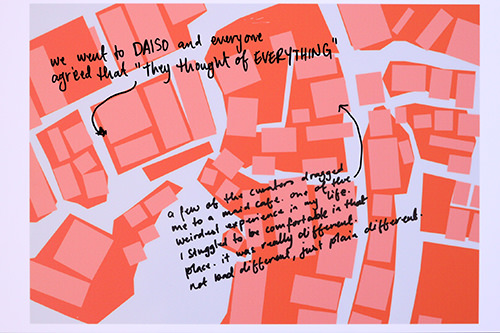 we went to DAISO and everyone
agreed that "they thought of EVERYTHING"
a few of the curators dragged
me to a maid cafe. one of the
weirdest experience in my life.
I struggled to be comfortable in that
place. it was really different.
not bad different, just plain different.